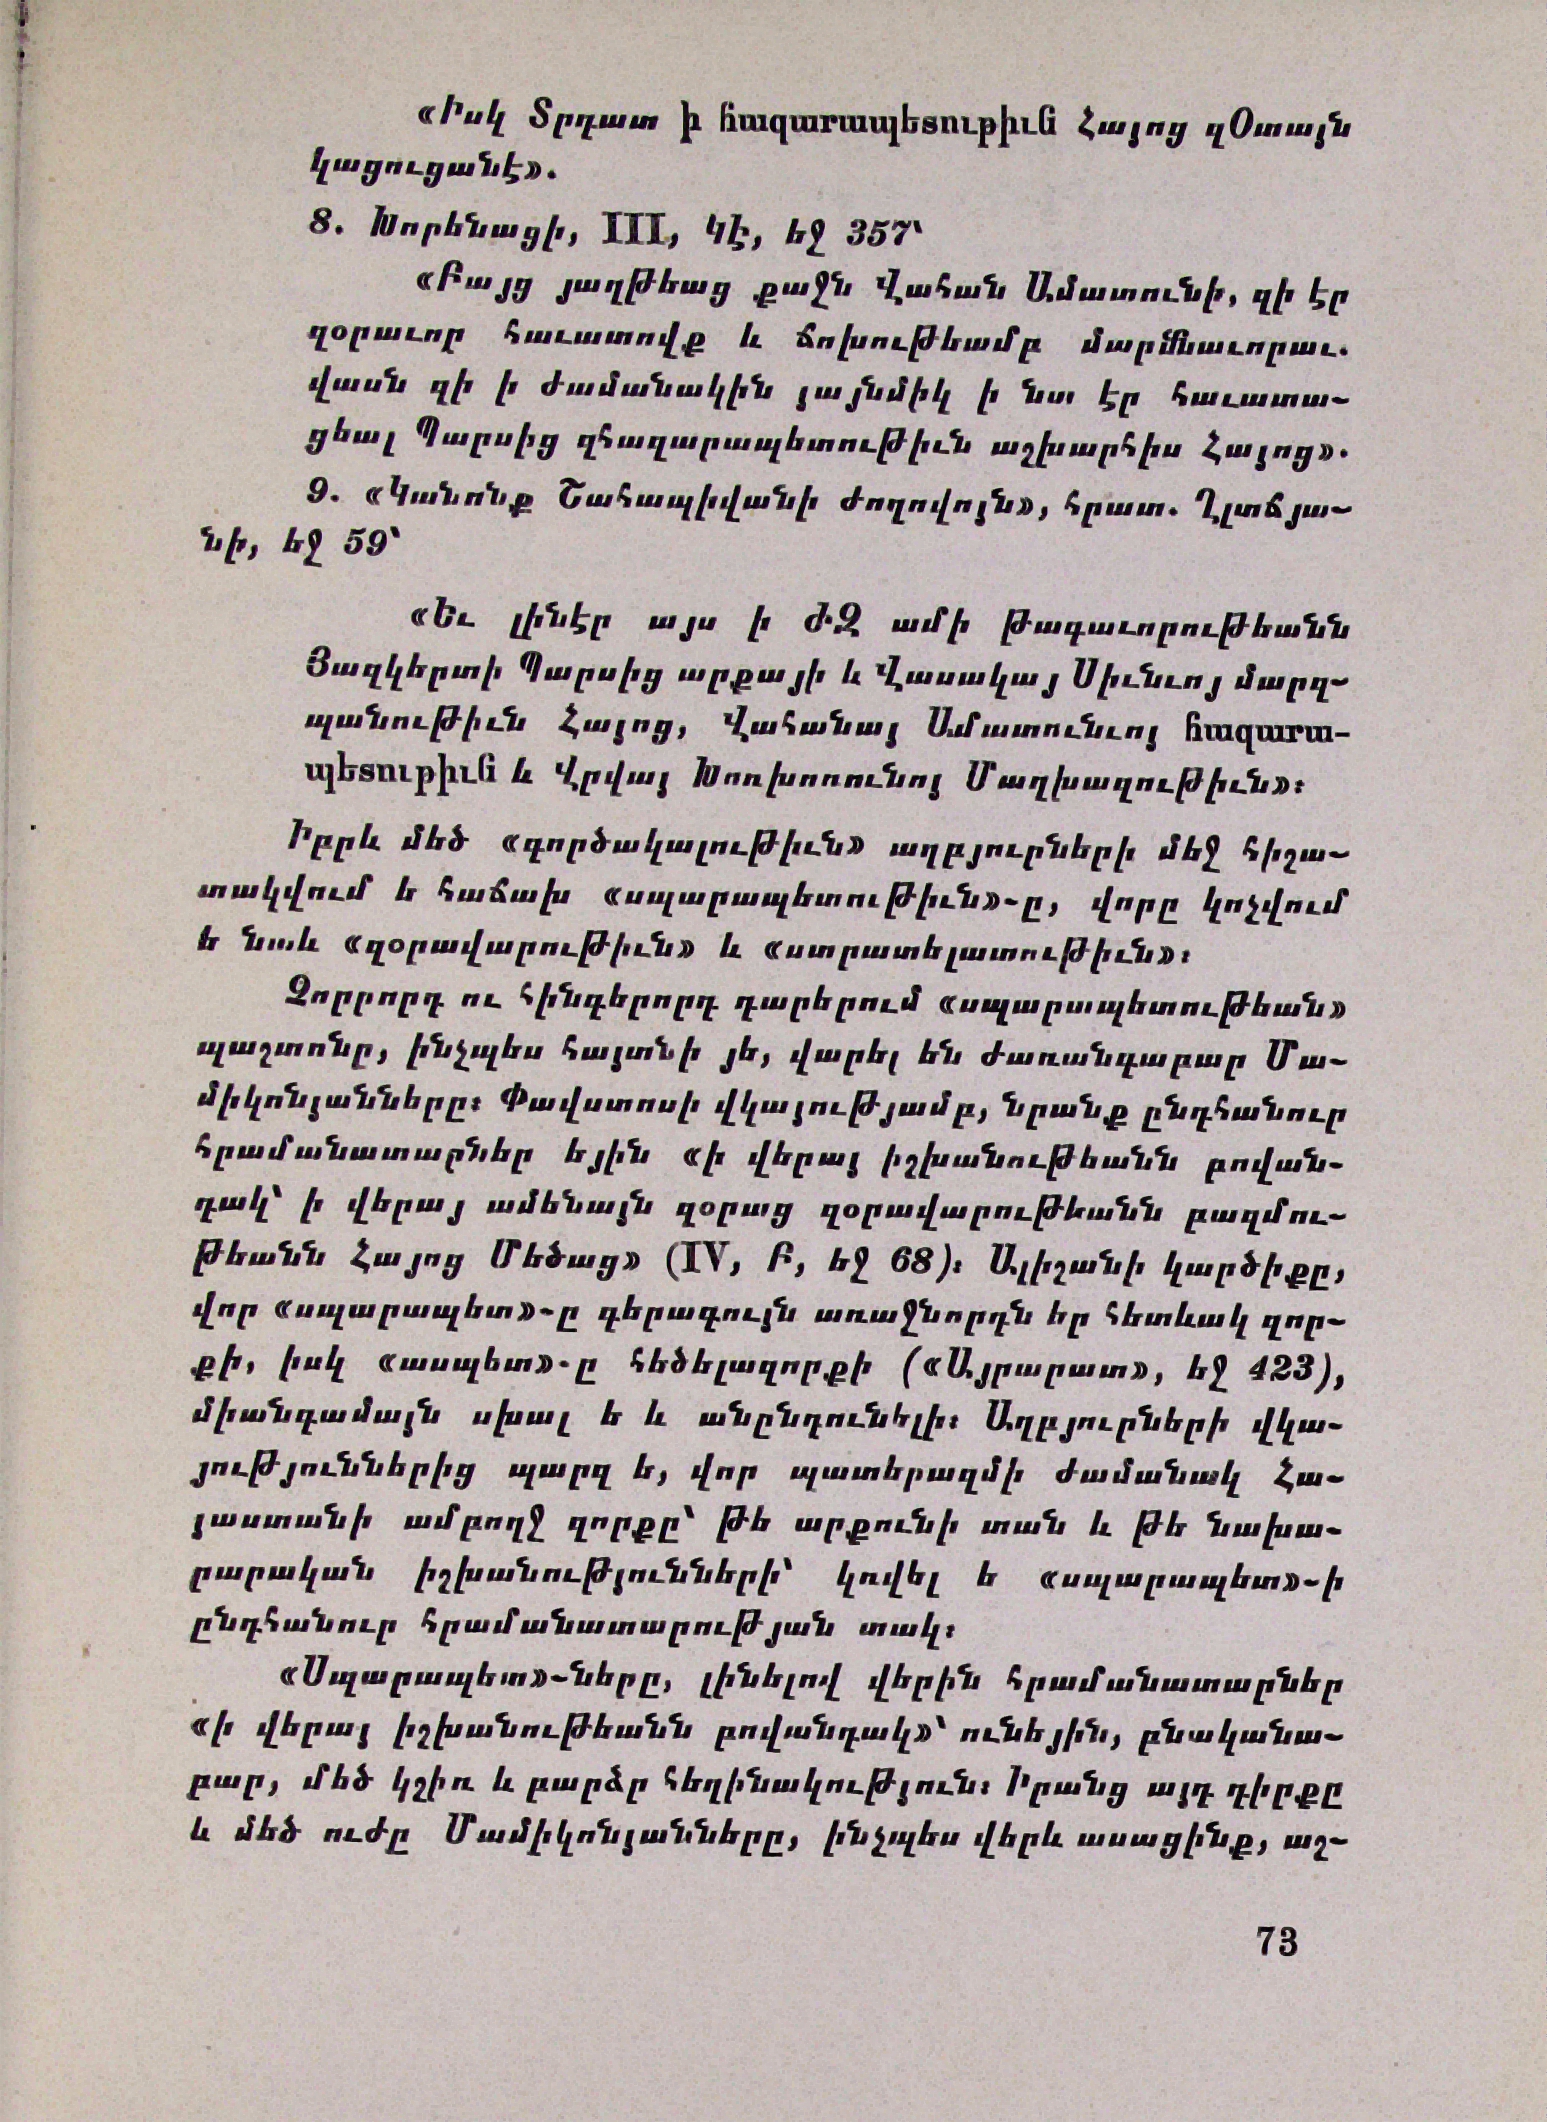 «Իսկ Տրդատ ի հազարապետութիւն Հայոց զՕտայն
կացուցանէ».
8. Խորենացի, III, ԿԷ, եջ 357՝
«Բայց յաղթեաց քաջն Վահան Ամատունի, զի էր
զօրաւոր հաւատովք և ճոխութեամբ մարմնաւորաւ.
վասն զի ի ժամանակին յայնմիկ ի նա էր հաւատա-
ցեալ Պարսից զհազարապետութիւն աշխարհիս Հայոց».
9. «Կանոնք Շահապիվանի ժողովոյն», հրատ. Ղլտճյա-
նի, եջ 59՝
«Եւ լինէր այս ի ԺԶ ամի թագաւորութեանն
Յազկերտի Պարսից արքայի և Վասակայ Սիւնւոյ մարզ-
պանութիւն Հայոց, Վահանայ Ամատունւոյ հազարա-
պետութիւն և Վրվայ Խոռխոռունոյ Մաղխազութիւն»։
Իբրև մեծ «գործակալութիւն» աղբյուրների մեջ հիշա-
տակվում ե հաճախ «սպարապետութիւն»-ը, վորը կոչվում
ե նաև «զօրավարութիւն» և «ստրատելատութիւն»։
Չորրորդ ու հինգերորդ դարերում «սպարապետութեան»
պաշտոնը, ինչպես հայտնի յե, վարել են ժառանգաբար Մա-
միկոնյանները։ Փավստոսի վկայությամբ, նրանք ընդհանուր
հրամանատարներ եյին «ի վերայ իշխանութեանն բովան-
դակ՝ ի վերայ ամենայն զօրաց զօրավարութեանն բազմու-
թեանն Հայոց Մեծաց» (IV, Բ, եջ 68)։ Ալիշանի կարծիքը,
վոր «սպարապետ»-ը գերագույն առաջնորդն եր հետևակ զոր-
քի, իսկ «ասպետ»-ը հեծելազորքի («Այրարատ», եջ 423),
միանգամայն սխալ ե և անընդունելի։ Աղբյուրների վկա-
յություններից պարզ ե, վոր պատերազմի ժամանակ Հա-
յաստանի ամբողջ զորքը՝ թե արքունի տան և թե նախա-
րարական իշխանությունների՝ կռվել ե «սպարապետ»-ի
ընդհանուր հրամանատարության տակ։
«Սպարապետ»-ները, լինելով վերին հրամանատարներ
«ի վերայ իշխանութեանն բովանդակ»՝ ունեյին, բնականա-
բար, մեծ կշիռ և բարձր հեղինակություն։ Իրանց այդ դիրքը
և մեծ ուժը Մամիկոնյանները, ինչպես վերև ասացինք, աշ-
73